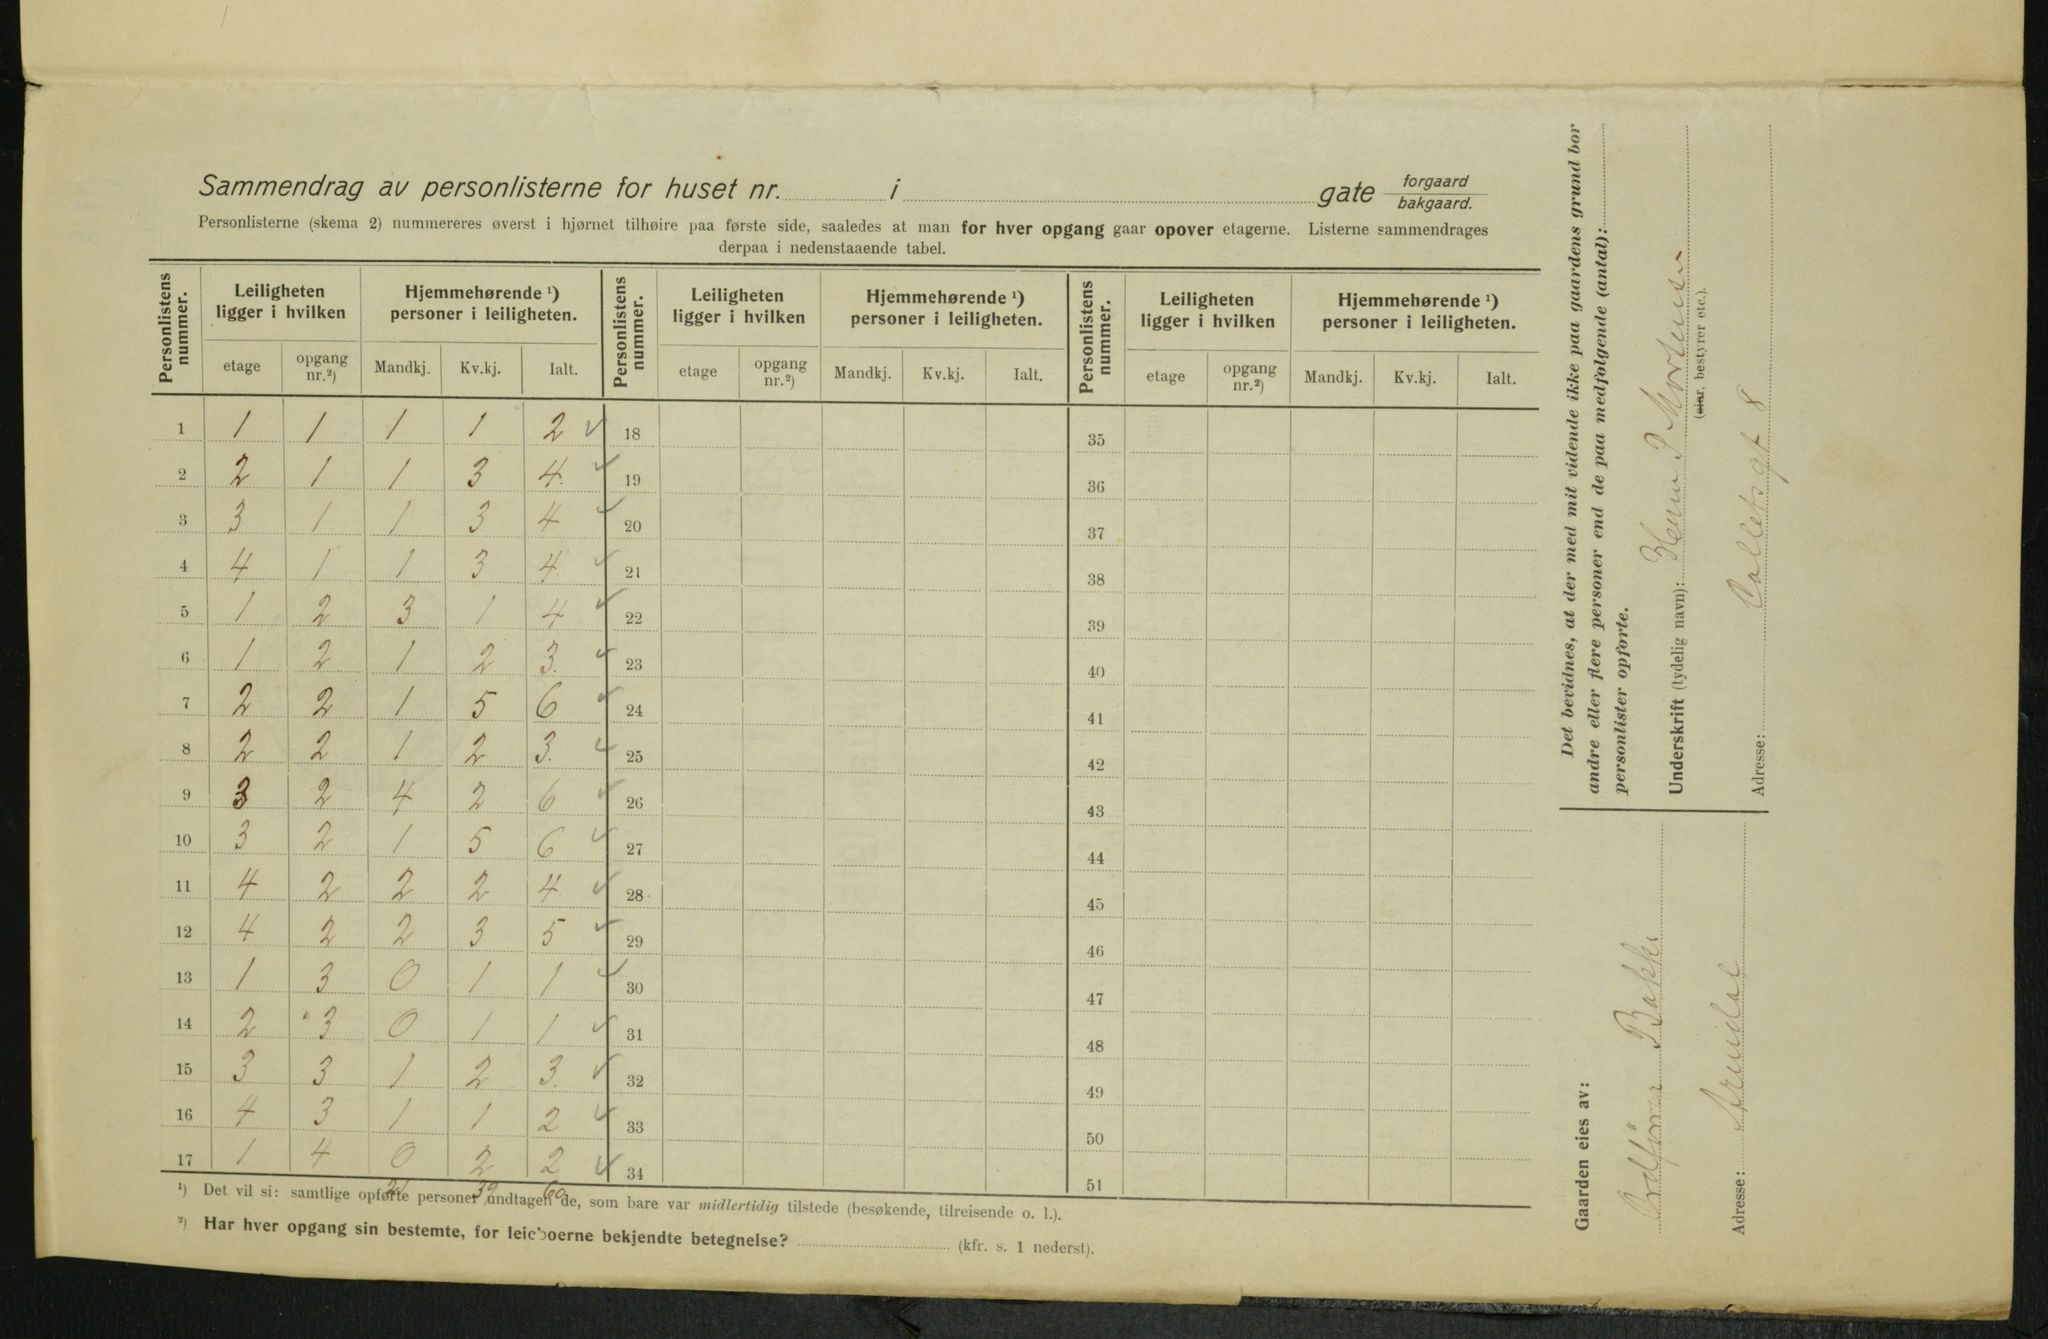 Sammendrag av personlisterne for huset nr. i gate forgaard
bakgaard.
Personlisterne (skema 2) nummereres øverst i hjørnet tilhøire paa første side, saaledes at man for hver opgang gaar opover etagerne. Listerne sammendrages
derpaa i nedenstaaende tabel.
Personlistens nummer. Leiligheten ligger i hvilken Hjemmehørende ¹) personer i leiligheten. Personlistens nummer. Leiligheten ligger i hvilken Hjemmehørende ¹) personer i leiligheten. Personlistens nummer. Leiligheten ligger i hvilken Hjemmehørende ¹) personer i leiligheten.
etage opgang nr.²) Mandkj. Kv.kj. Ialt. etage opgang nr.²) Mandkj. Kv.kj. Ialt. etage opgang nr.²) Mandkj. Kv.kj. Ialt.
1 1 1 1 1 2 ✓ 18 35
2 2 1 1 3 4. ✓ 19 36
3 3 1 1 3 4 ✓ 20 37
4 4 1 1 3 4. ✓ 21 38
5 1 2 3 1 4 ✓ 22 39
6 1 2 1 2 3. ✓ 23 40
7 2 2 1 5 6 ✓ 24 41
8 2 2 1 2 3. ✓ 25 42
9 3 2 4 2 6 ✓ 26 43
10 3 2 1 5 6 ✓ 27 44
11 4 2 2 2 4 ✓ 28 45
12 4 2 2 3 5 ✓ 29 46
13 1 3 0 1 1 ✓ 30 47
14 2 3 0 1 1 ✓ 31 48
15 3 3 1 2 3. ✓ 32 49
16 4 3 1 1 2 ✓ 33 50
17 1 4 0 2 2 ✓ 34 51
21 39 60
¹) Det vil si: samtlige opførte personer undtagen de, som bare var midlertidig tilstede (besøkende, tilreisende o. l.).
²) Har hver opgang sin bestemte, for leieboerne bekjendte betegnelse? (kfr. s. 1 nederst).
Det bevidnes, at der med mit vidende ikke paa gaardens grund bor
andre eller flere personer end de paa medfølgende (antal):
personlister opførte.
Underskrift (tydelig navn): Henr P Mortensen
(eier, bestyrer etc.).
Adresse: Colletsgt 8
Gaarden eies av:
Ordfører Bakke
Adresse: Arendal